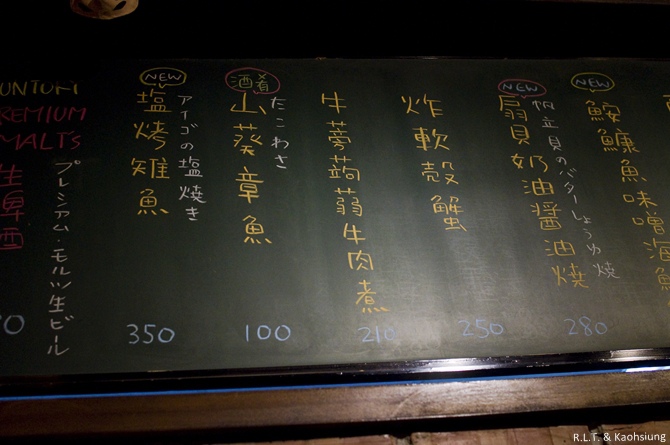 UNTORY
REMIUM
MALT'S
生啤酒
プレシアム・モルツ生ビール
0
NEW
塩烤雉魚
アイゴの塩焼き
350
酒肴
山葵章魚
たこわさ
100
牛蒡蒟蒻牛肉煮
210
炸軟殼蟹
250
NEW
扇貝奶油醬油燒
帆立貝のバターしょうゆ焼
280
NEW
鮟鱇魚味噌
R.L.T. & Kaohsiung